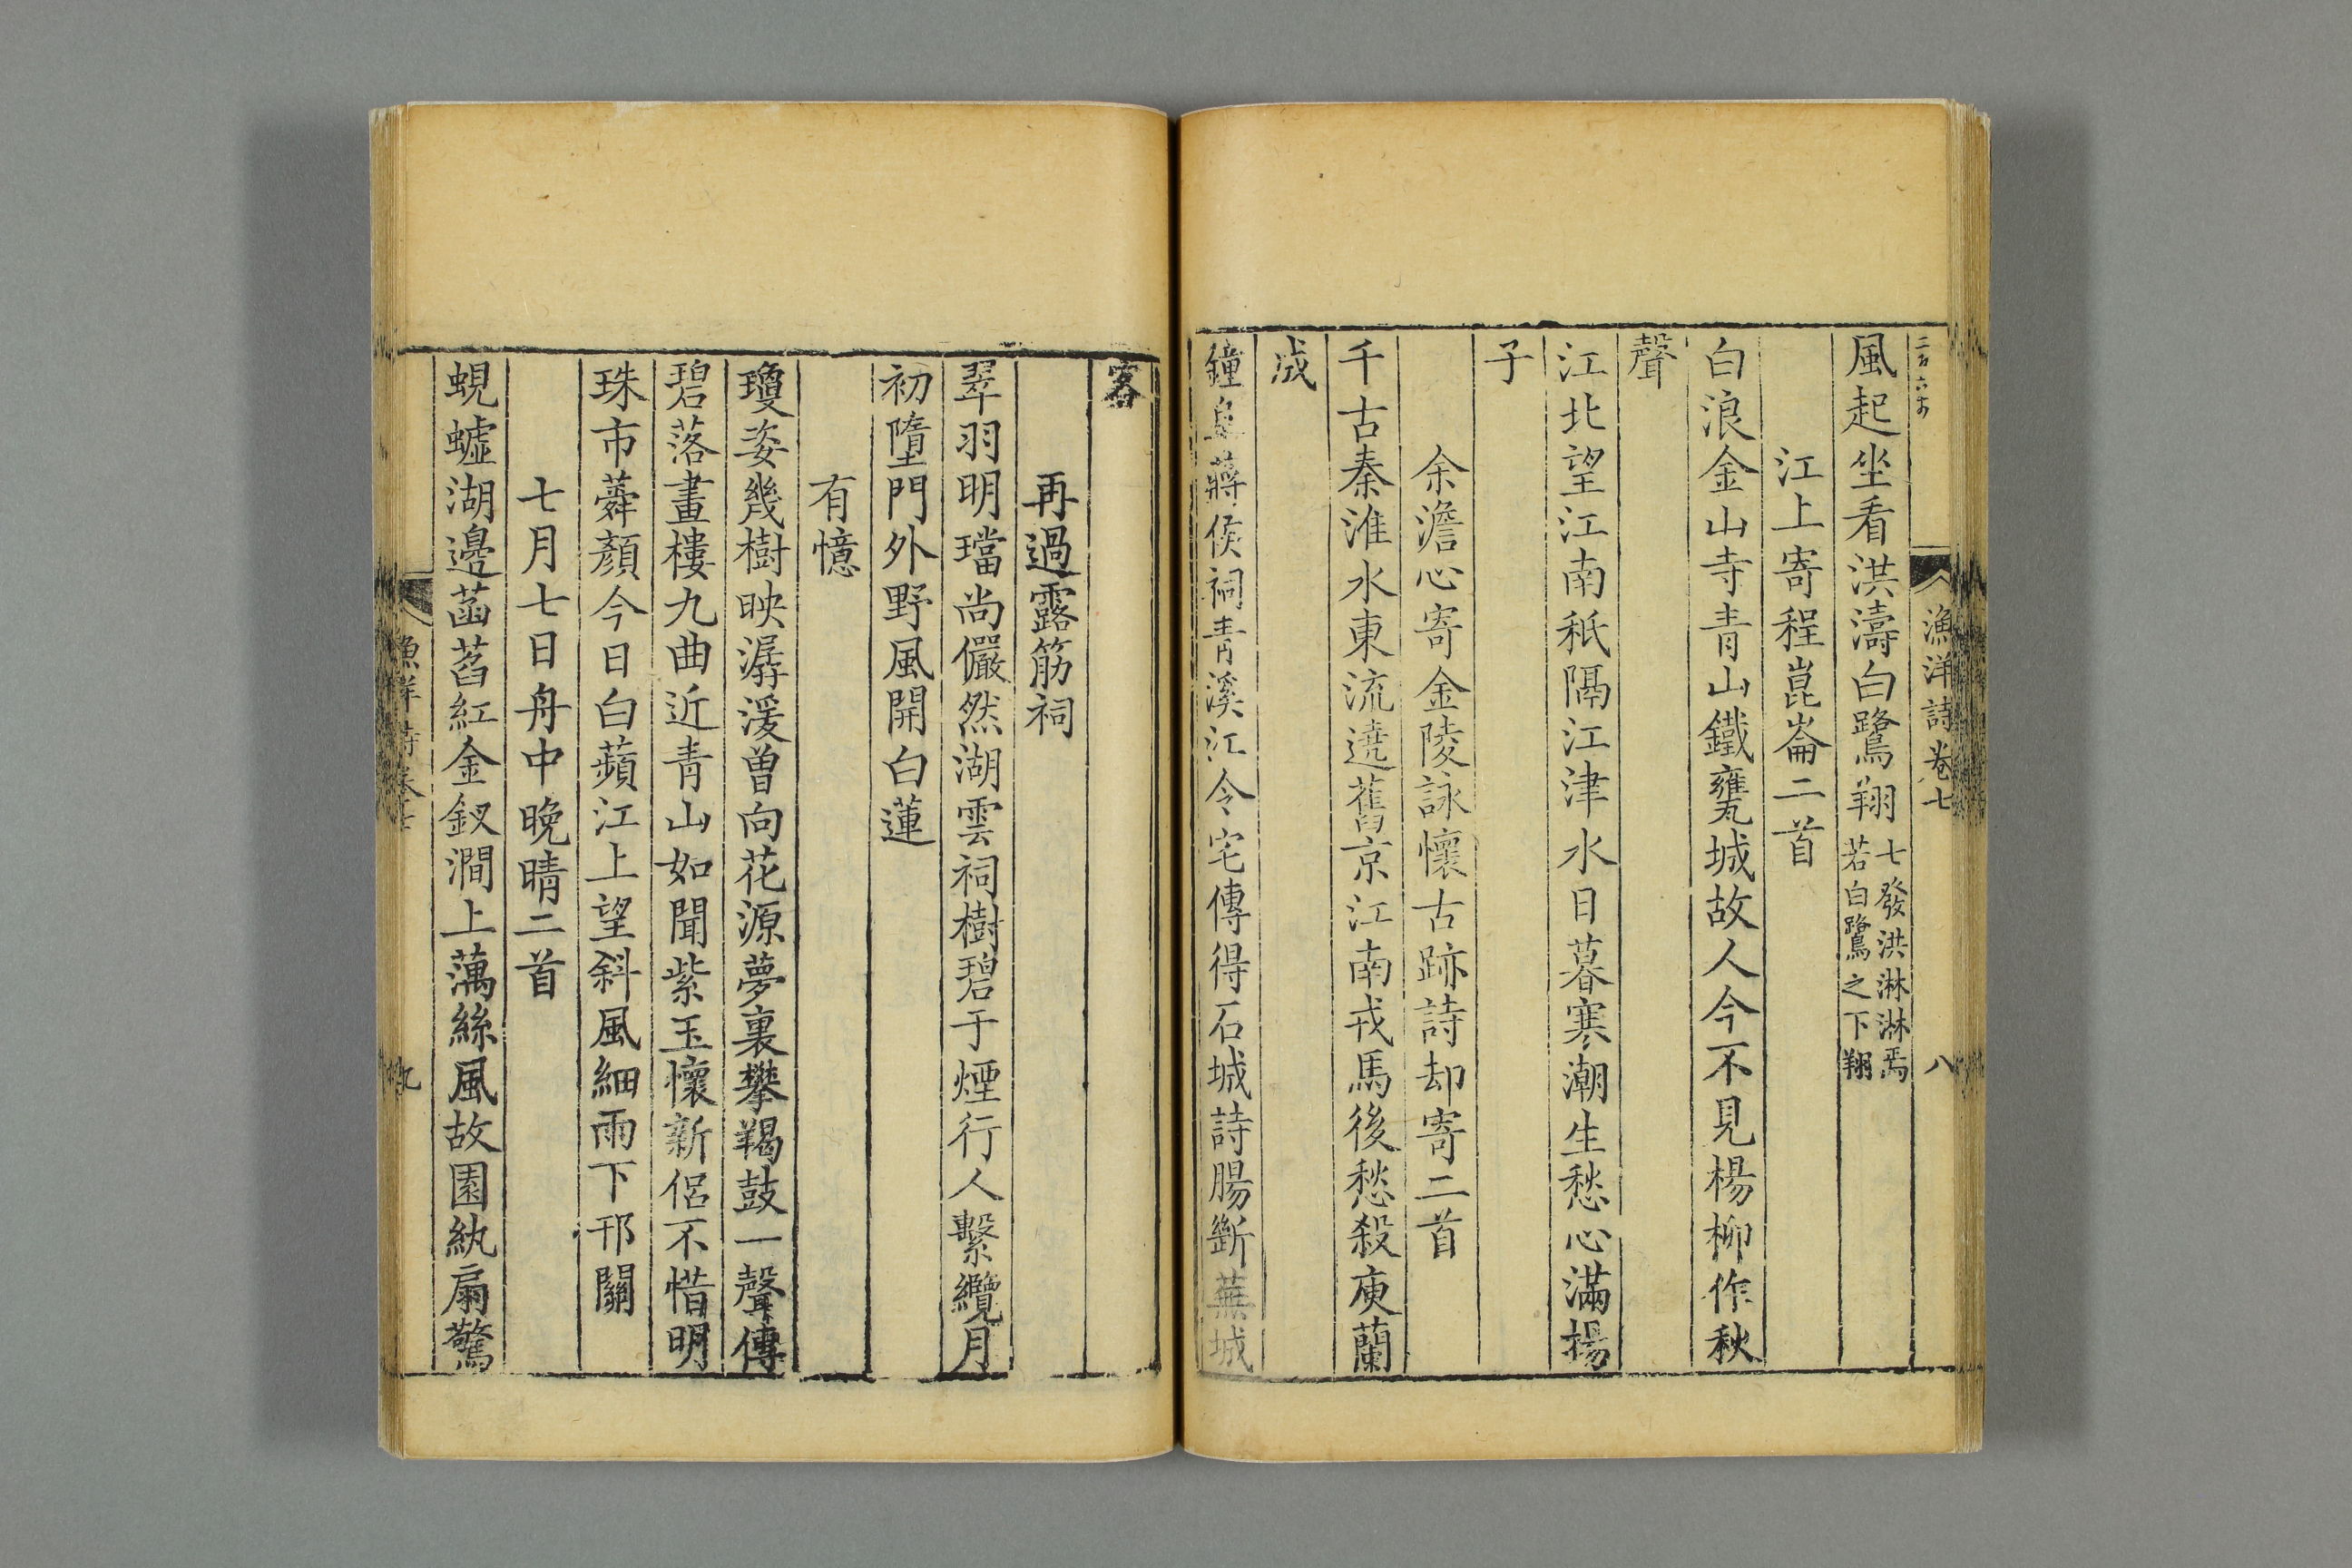 漁洋詩卷七
八
風起坐看洪濤白鷺翔七發洪淋淋焉
若白鷺之下翔
江上寄程崑崙二首
白浪金山寺青山鐵甕城故人今不見楊柳作秋
聲
江北望江南秖隔江津水日暮寒潮生愁心滿揚
子
余澹心寄金陵詠懷古跡詩却寄二首
千古秦淮水東流遶舊京江南戎馬後愁殺庾蘭
成
鐘皇蔣侯祠青溪江令宅傳得石城詩腸斷蕪城
客
再過露筋祠
翠羽明璫尚儼然湖雲祠樹碧于煙行人繫纜月
初墮門外野風開白蓮
有憶
瓊姿幾樹映潺湲曾向花源夢裏攀羯鼓一聲傳
碧落畫樓九曲近青山如聞紫玉懷新侶不惜明
珠市蕣顏今日白蘋江上望斜風細雨下邗關
七月七日舟中晚晴二首
蜆墟湖邊菡萏紅金釵澗上藕絲風故園紈扇驚
九